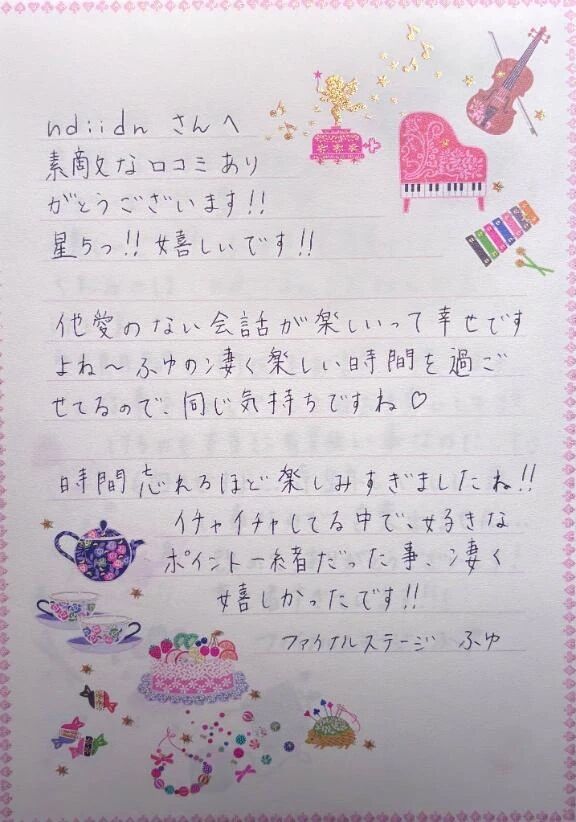 ndiidn さんへ
素敵な口コミあり
がとうございます!!
星5っ!! 嬉しいです!!
他愛のない会話が楽しいって幸せです
よね〜ふゆの凄く楽しい時間を過ご
せてるので、同じ気持ちですね♡
時間忘れるほど楽しみすぎましたね!!
イチャイチャしてる中で、好きな
ポイント一緒だった事、凄く
嬉しかったです!!
ファイナルステージ ふゆ